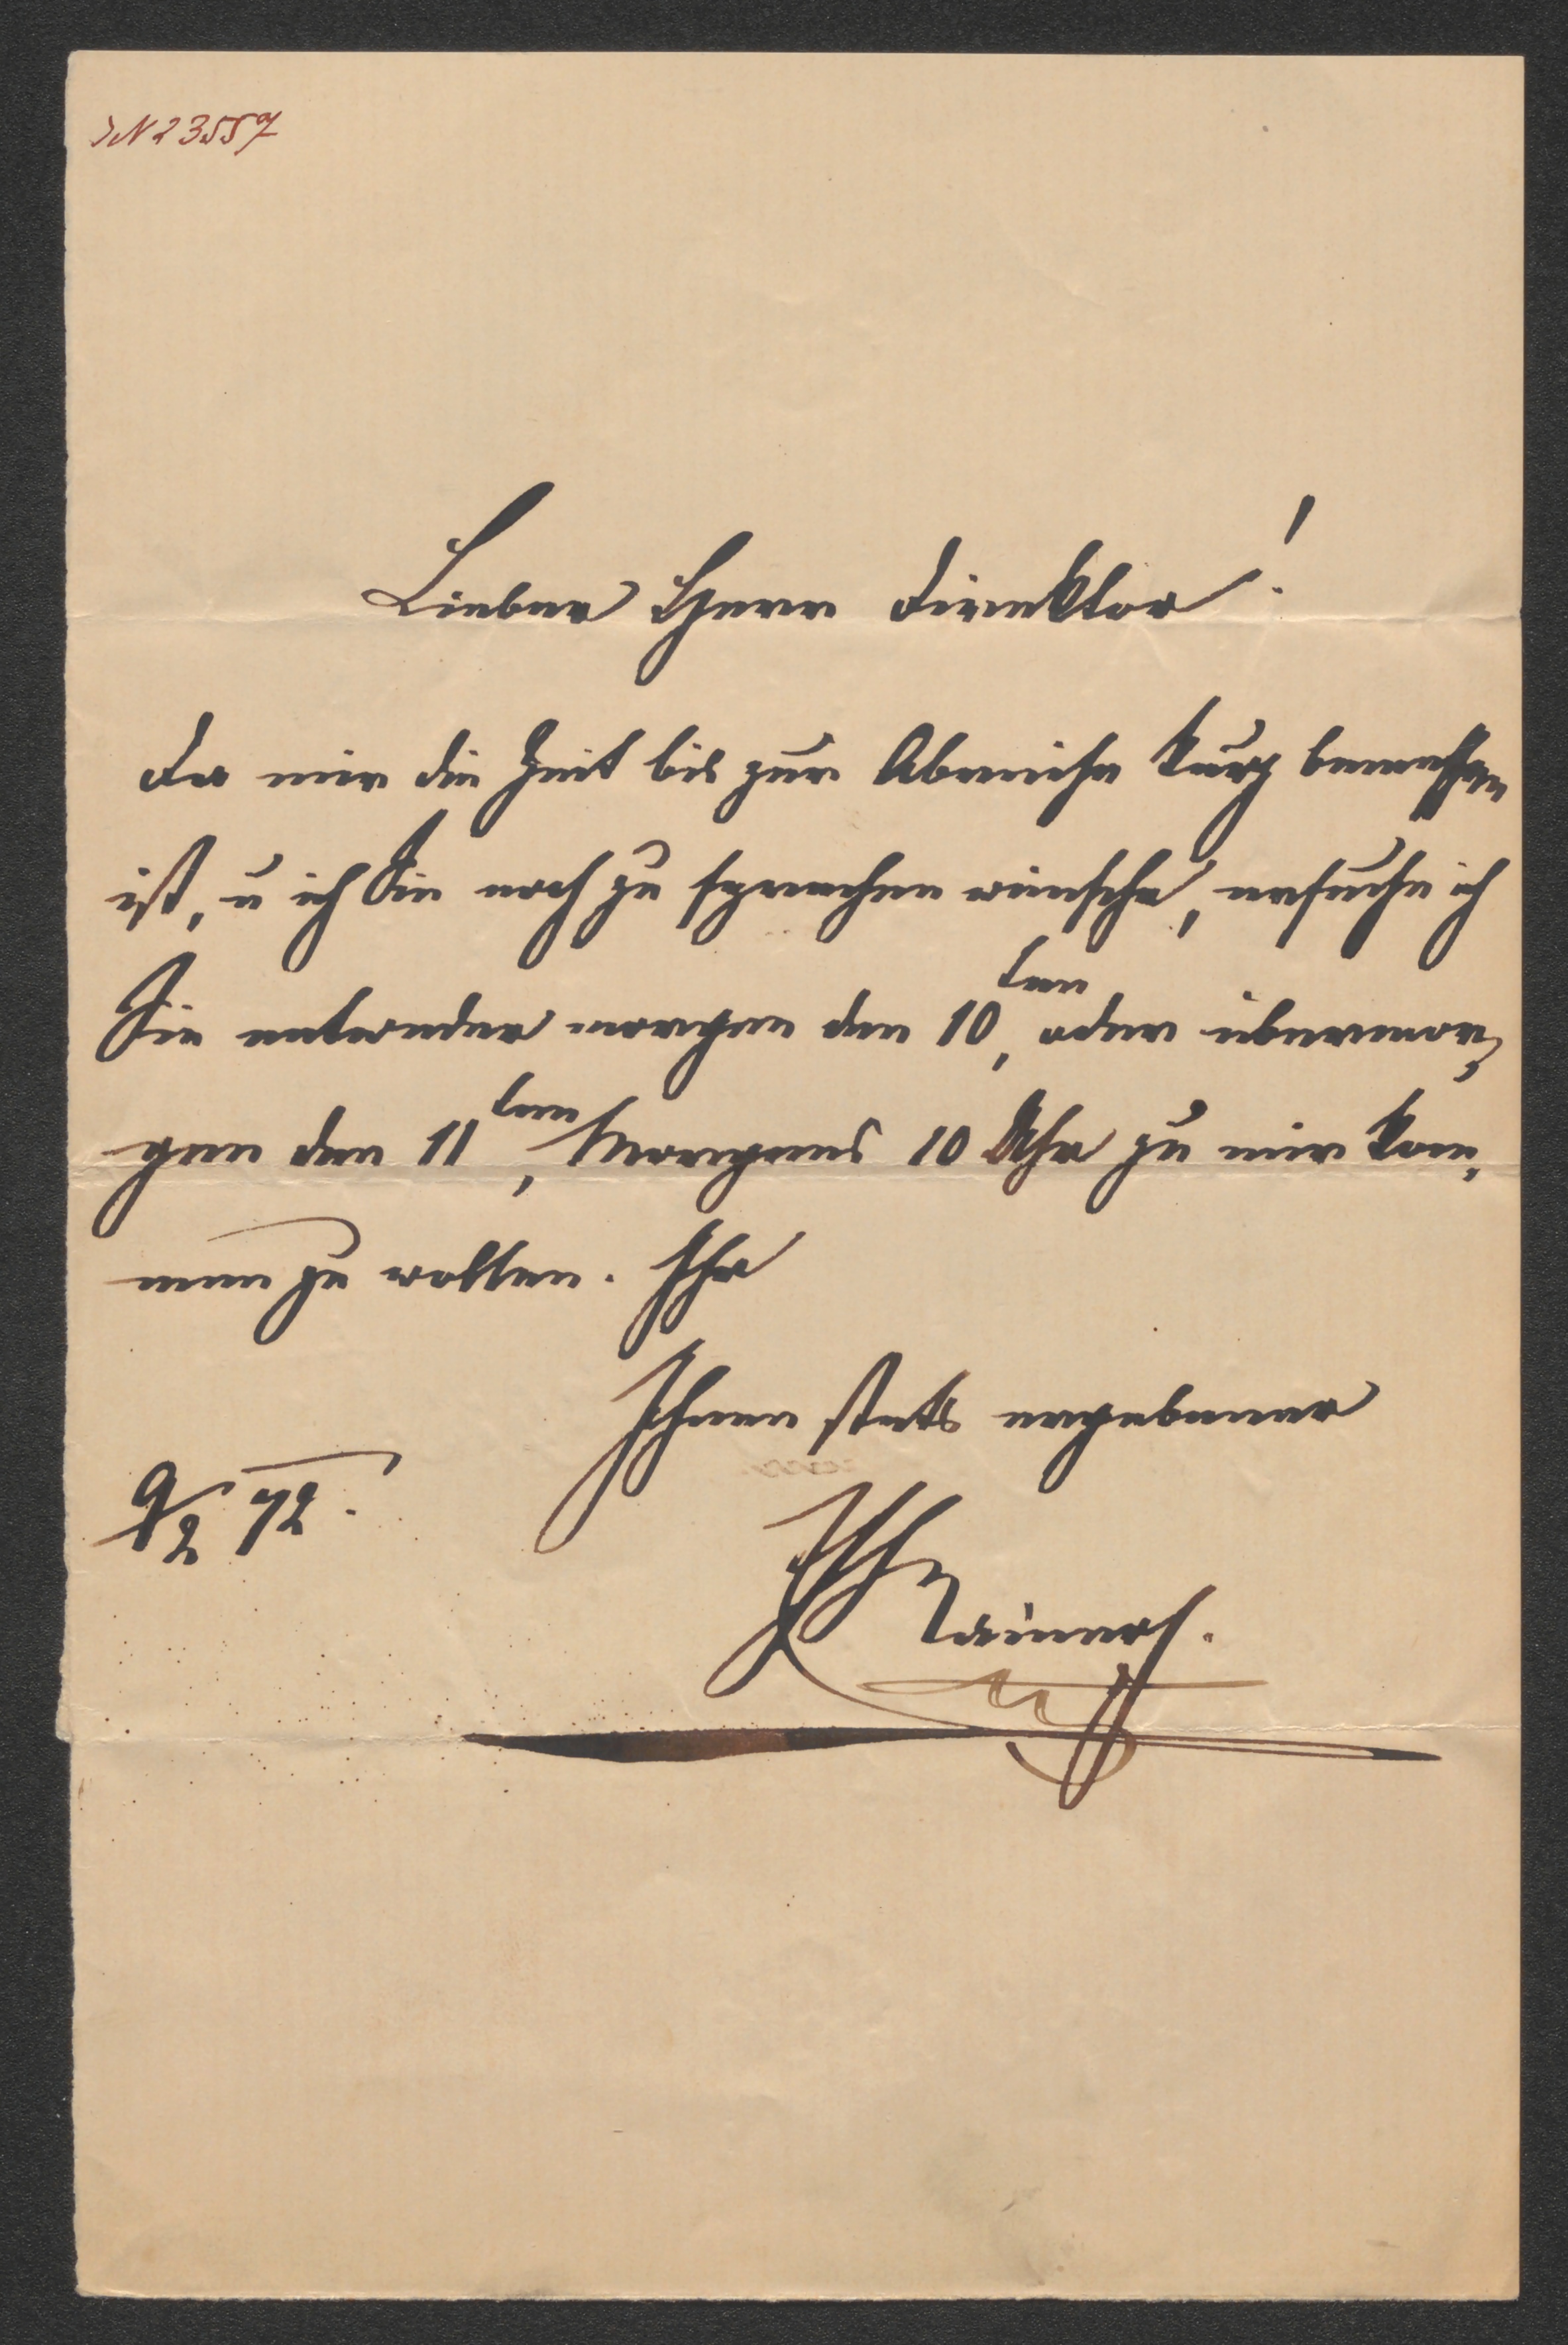 IN 23557
Lieber Herr Direktor!
Da mir die Zeit bis zur Abreise kurz bemessen
ist, u ich Sie noch zu sprechen wünsche, ersuche ich
Sie entweder morgen den 10ten, oder übermor,
gen den 11ten, Morgens 10 Uhr zu mir kom,
men zu wollen. Ihr
Ihnen stets ergebener
9/2 72.